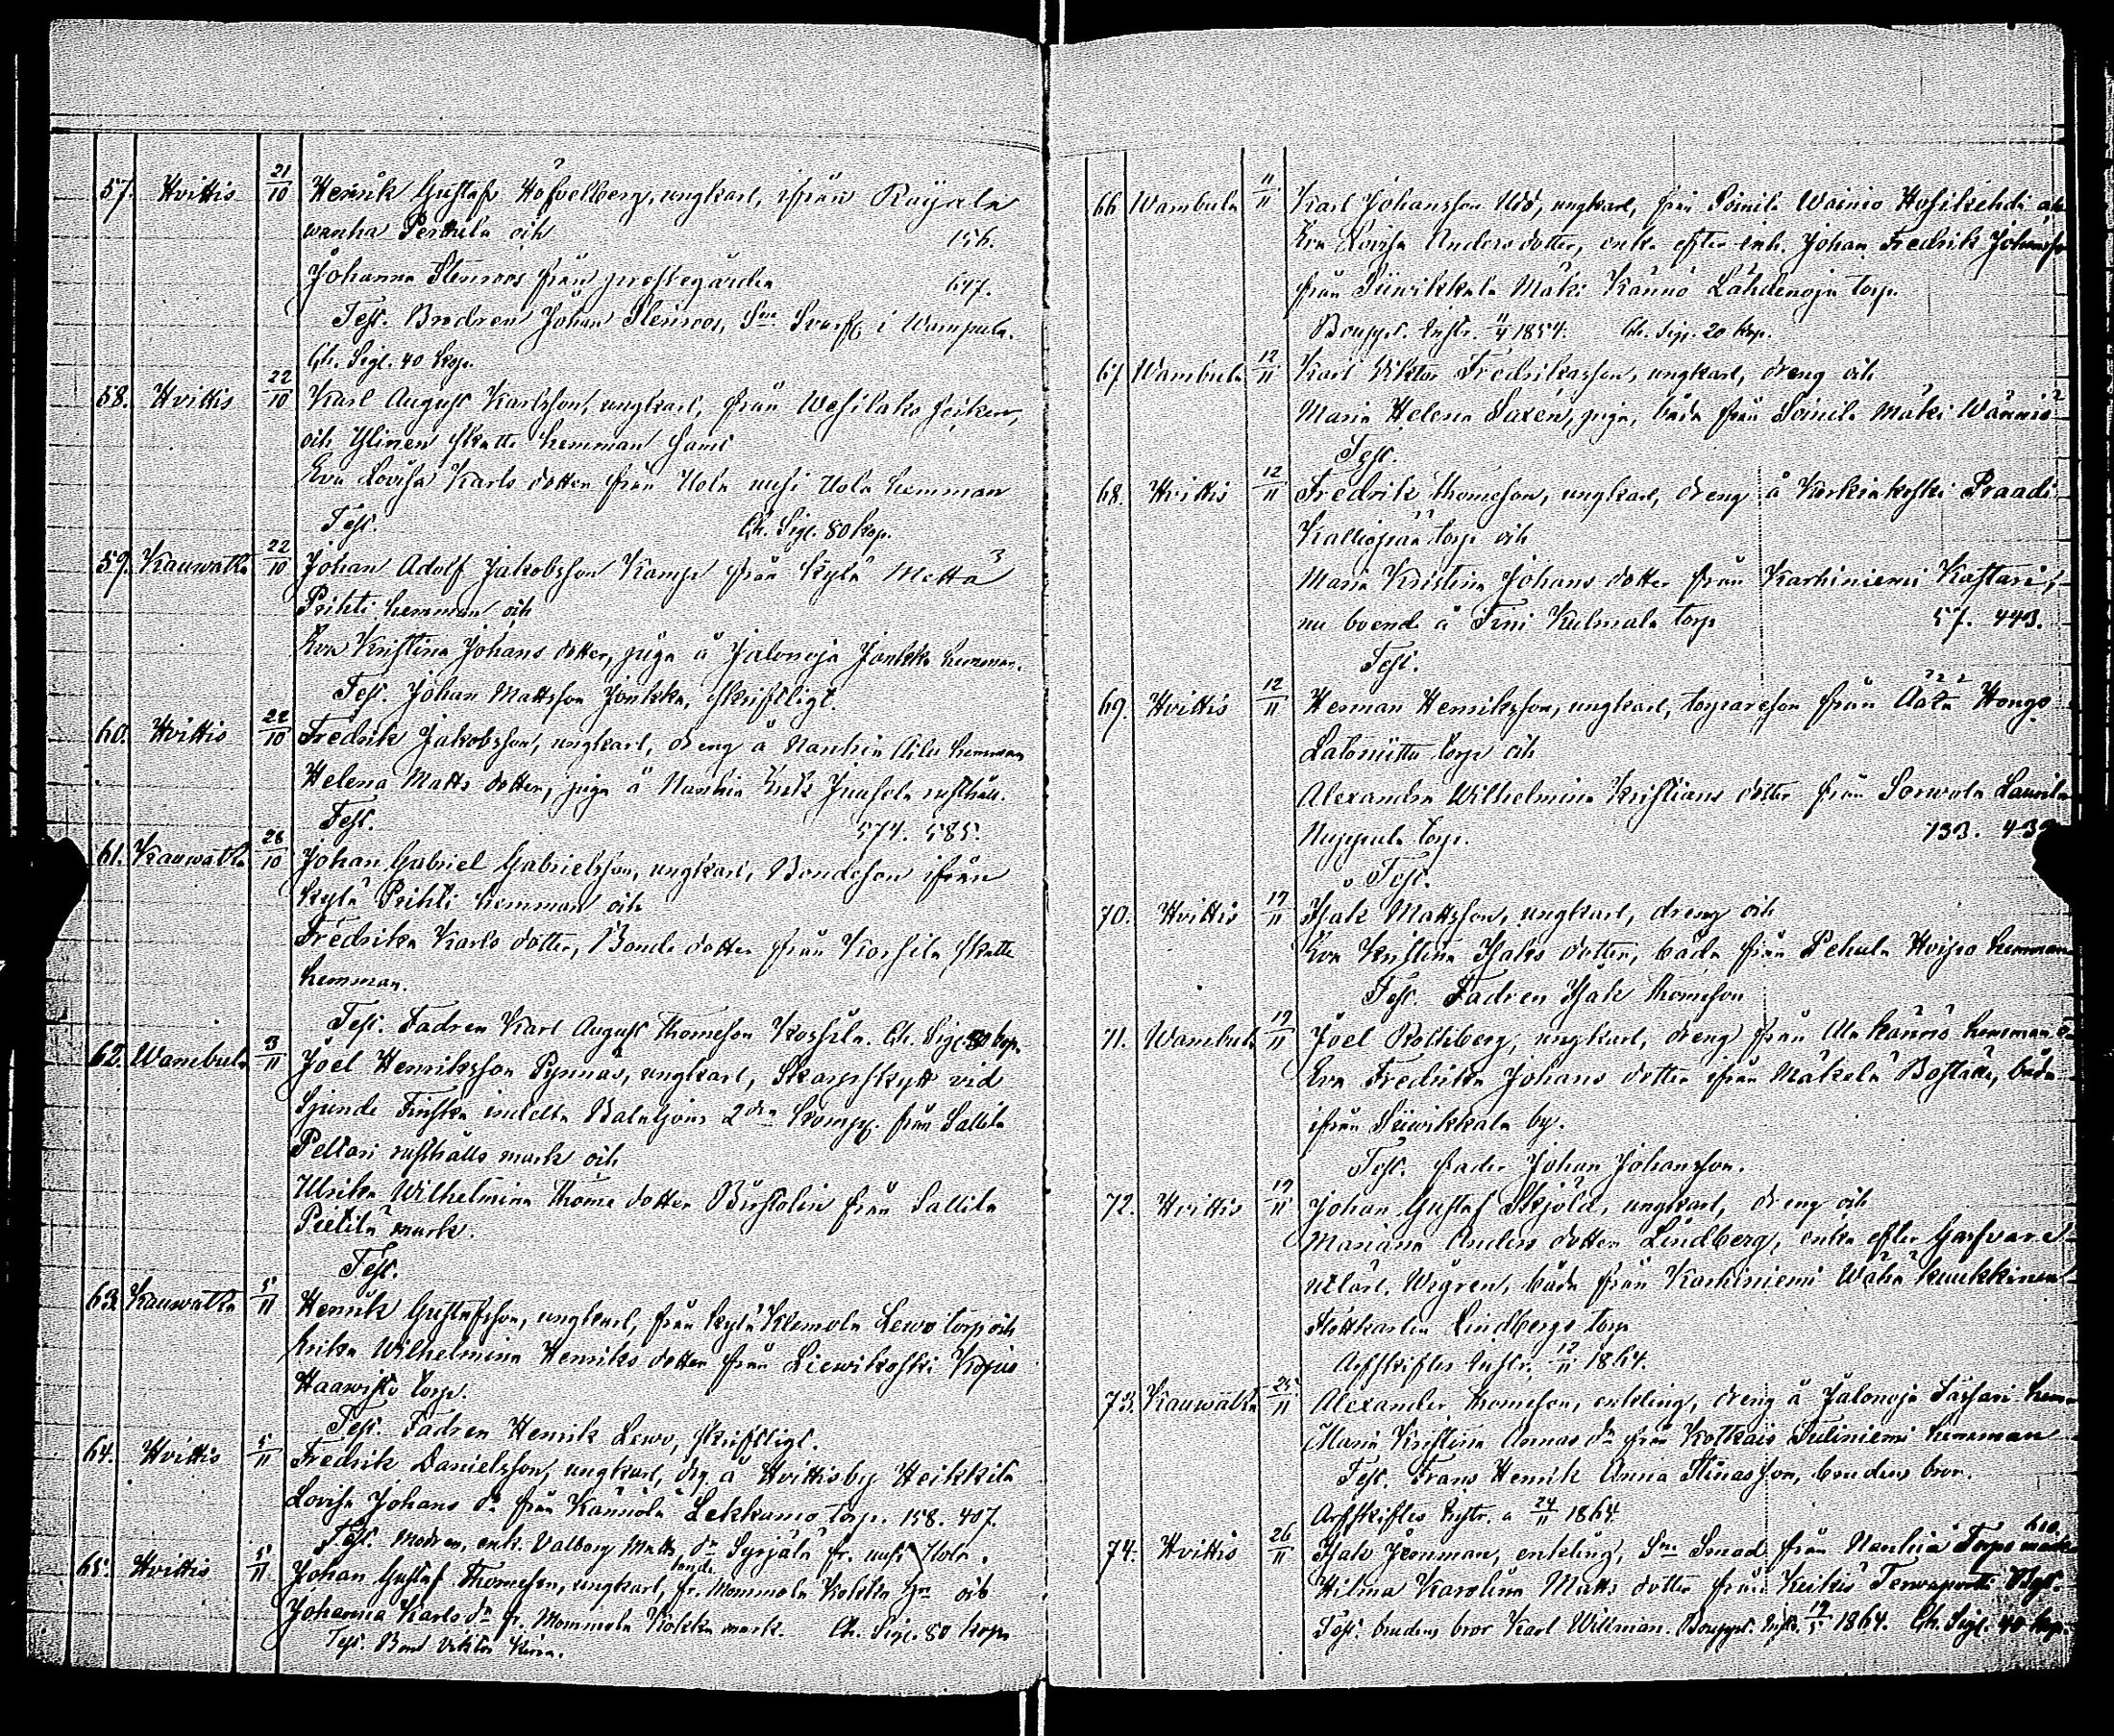 57. Hvittis 21/10 Henrik Gustaf Höfvelberg, ungkarl, ifrån Räijälä
wanha Perttula och 156.
Johanna Stenroos från prestegården 647.
Test. Brodren Johan Stenroos, Sne Svarf. i Wampula.
Ch. Sigl. 40 kop.
58. Hvittis 22/10 Karl August Karlsson, ungkarl, från Wesilaks socken,
och Ylinen skatte hemman samt
Eva Lovisa Karls dotter från Uola uusi Uola hemman
Test. Ch. Sigl. 80 kop.
59. Kauwatsa 22/10 Johan Adolf Jakobsson Kamp från Kylä Mettä
Prihti hemman och
Eva Kristina Johans dotter, piga å Jalonoja Jonkka hemman.
Test. Johan Mattsson Jonkka, skriftligt.
60. Hvittis 22/10 Fredrik Jakobsson, ungkarl, dreng å Nanhia hemman
Helena Matts dotter, piga å Nanhia Erik Juusela rusthåll.
Test. 574. 585.
61. Kauwatsa 28/10 Johan Gabriel Gabrielsson, ungkarl, Bondeson ifrån
Kylä Prihti hemman och
Fredrika Karls dotter, Bonde dotter från Korsila skatte
hemman.
Test. Fadren Karl August Thomeson Korsila. Ch. Sigl. 80 kop.
62. Wambula 3/11 Joel Henriksson Pynnäs, ungkarl, Skarpskytt vid
Sjunde Finska indelta Bataljons 2dra Komp. från Sallila
Peltari rusthålls mark och
Ulrika Wilhelmina Thome dotter från Sallila
Pietilä mark.
Test.
63. Kauwatsa 5/11 Henrik Gustafsson, ungkarl, från Kylä Klemola Lewo torp och
Erika Wilhelmina Henriks dotter från Liewikoski
Haawisto torp.
Test. Fadren Henrik Lewo, skriftligt.
64. Hvittis 5/11 Fredrik Danielsson, ungkarl, drg å Hvittisby Heikkilä
Lovisa Johans dr från Kännölä Lekkamo torp. 158. 407.
Test. Modren, enk. Valborg Matts dr Syrjälä fr. uusi Uola.
65. Hvittis 5/11 Johan Gustaf Thomeson, ungkarl, bonde fr. Mommola Kokka hn och
Johanna Karls dr fr. Mommola Kokka mark. Ch. Sigl. 80 kop.
Test. Bond Viktor
66 Wambula 11/11 Karl Johansson Udd, ungkarl, från Soinila Wainio Hosikehdi och
Eva Lovisa Anders dotter, enka efter inh. Johan Fredrik Johansson
från Siiwikkala Mäki Kännö Lähdenoja torp.
Bouppt. Instr. 11/4 1854. Ch. Sigl. 20 kop.
67 Wambula 12/11 Karl Viktor Fredriksson, ungkarl, dreng och
Maria Helena Saxén, piga, båda från Soinila Mäki Wänniö
Test.
68. Hvittis 12/11 Fredrik Thomeson, ungkarl, dreng å Korkiakoski Praadi
torp och
Maria Kristina Johans dotter från Karhiniemi Kustari,
nu boende å Kulmala torp 57. 443.
Test.
69. Hvittis 12/11 Herman Henriksson, ungkarl, torpareson från Hongo
Latoniittu torp och
Alexandra Wilhelmina Kristians dotter från Sorwola Laurila
Nuppula torp. 133.
Test.
70. Hvittis 19/11 Isak Mattsson, ungkarl, dreng och
Eva Kristina Isaks dotter, båda från Pehula hemman
Test. Fadren Isak Thomeson
71. Wambula 19/11 Joel Rothberg, ungkarl, dreng från Ala Kännö hemman
Eva Fredrika Johans dotter ifrån Mäkelä Boställe, båda
ifrån Siiwikkala by.
Test. fader Johan Johansson.
72. Hvittis 19/11 Johan Gustaf Skjöld, ungkarl, dreng och
Mariana Anders dotter Lindberg, enka efter Garfvare
Wigren, båda från Karhiniemi Wähä kuukkinen
Lindbergs torp
Arfskiftes Instr. 12/11 1864.
73. Kauwatsa 25/11 Alexander Thomeson, enkling, dreng å Jalonoja Sassari hem
Maria Kristina Annas dr från Kotkais Tuliniemi hemman
Test. Frans Henrik Anna Stinasson, brudens bror.
Arfskiftes Instr. a 24/11 1864.
74. Hvittis 26/11 Isak Jernman, enkling, Sne Smed från Nanhia Torpo mark 610.
Hilma Karolina Matts dotter från Keikiö
Test. brudens bror Karl Willman. Bouppt. Instr. 19/5 1864. Ch. Sigl. 40 kop.